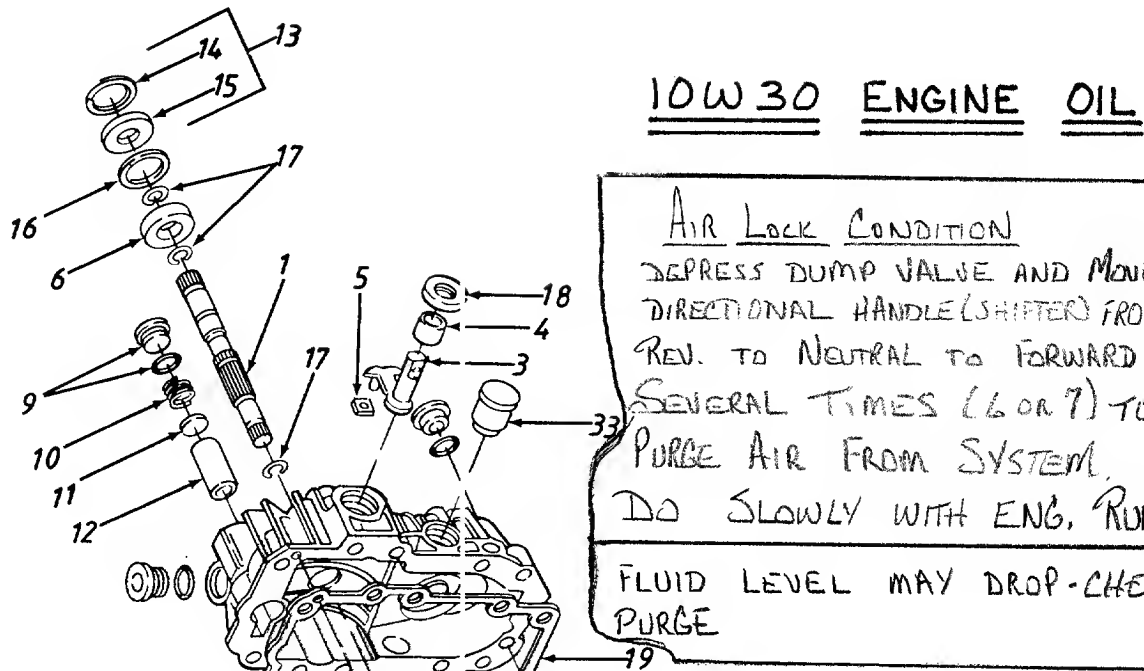 13
14
15
17
16
6
5
1
18
4
3
9
17
33
10
11
12
19
10W30 ENGINE OIL
AIR LOCK CONDITION
DEPRESS DUMP VALVE AND
DIRECTIONAL HANDLE (SHIFTER)
REV. TO NEUTRAL TO FORWARD
SEVERAL TIMES (6 OR 7)
PURGE AIR FROM SYSTEM.
DO SLOWLY WITH ENG.
FLUID LEVEL MAY DROP-
PURGE